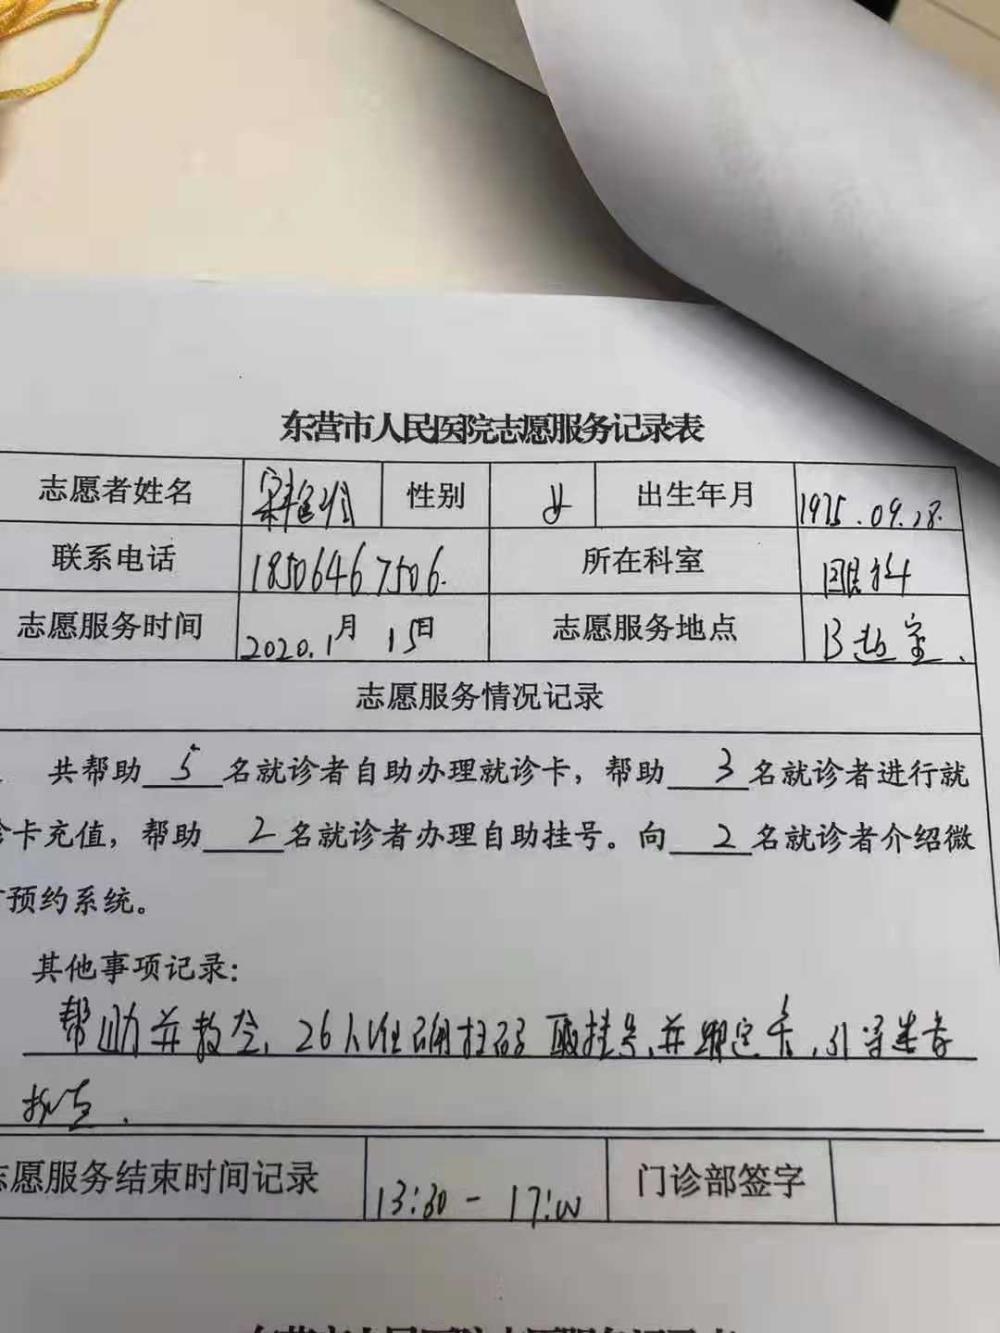 东营市人民医院志愿服务记录表
志愿者姓名 宋 性别 女 出生年月 1975.09.28.
联系电话 18506467506. 所在科室 眼科
志愿服务时间 2020.1月 15日 志愿服务地点 B超室.
志愿服务情况记录
共帮助 5 名就诊者自助办理就诊卡，帮助 3 名就诊者进行就
诊卡充值，帮助 2 名就诊者办理自助挂号。向 2 名就诊者介绍微
预约系统。
其他事项记录：
帮助并教会, 26人准确扫码取挂号,并绑定卡,引导患者
志愿服务结束时间记录 13:30 - 17:00 门诊部签字
东营市人民医院志愿服务记录表